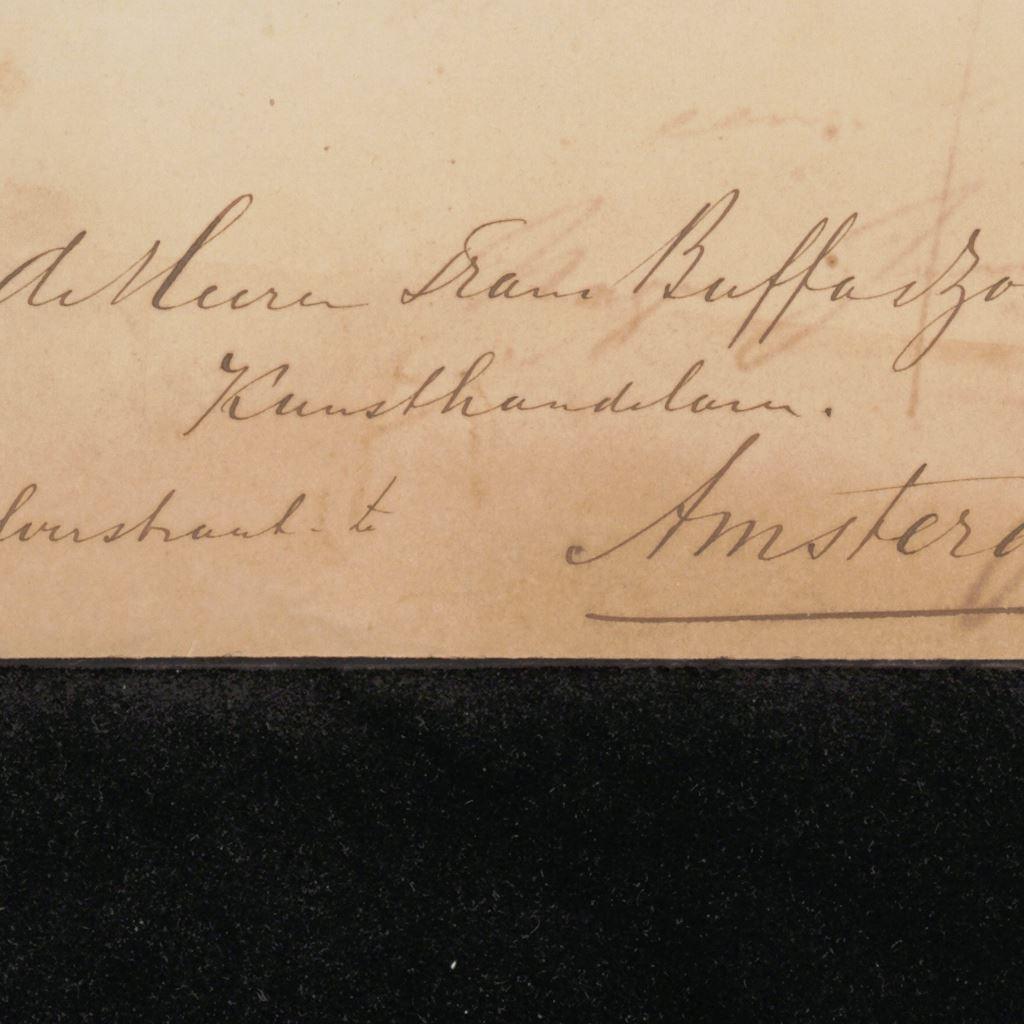 de Heeren Frans Buffa & Zo
Kunsthandelaren.
lverstraat te Amsterd